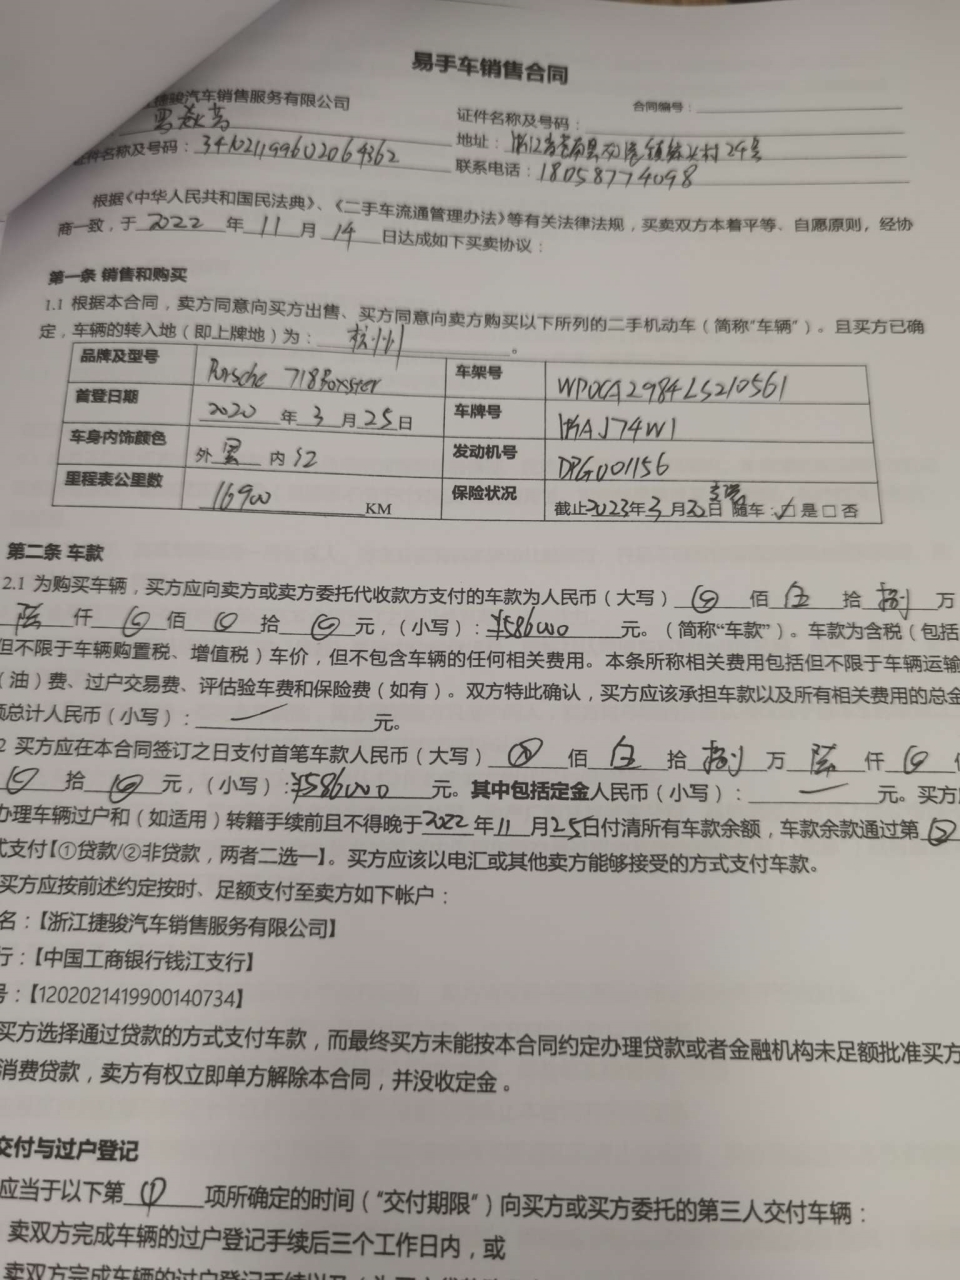 易手车销售合同
合同编号：
捷骏汽车销售服务有限公司
证件名称及号码：
地址：
24号
证件名称及号码：
联系电话：18058774098
根据《中华人民共和国民法典》、《二手车流通管理办法》等有关法律法规，买卖双方本着平等、自愿原则，经协
商一致，于 2022 年 11 月 14 日达成如下买卖协议：
第一条 销售和购买
1.1 根据本合同，卖方同意向买方出售、买方同意向卖方购买以下所列的二手机动车（简称“车辆”）。且买方已确
定，车辆的转入地（即上牌地）为： 杭州 。
品牌及型号 Porsche 718Boxster 车架号 WP0CA2984LS210561
首登日期 2020 年 3 月 25 日 车牌号 浙AJ74W1
车身内饰颜色 外 黑 内 红 发动机号 DPG001156
里程表公里数 16900 KM 保险状况 截止2023年3月 日 随车：☑是□否
第二条 车款
2.1 为购买车辆，买方应向卖方或卖方委托代收款方支付的车款为人民币（大写） 佰 伍 拾 捌 万
陆 仟 佰 拾 元，（小写）：¥586000 元。（简称“车款”）。车款为含税（包括
但不限于车辆购置税、增值税）车价，但不包含车辆的任何相关费用。本条所称相关费用包括但不限于车辆运输
（油）费、过户交易费、评估验车费和保险费（如有）。双方特此确认，买方应该承担车款以及所有相关费用的总金
额总计人民币（小写）： 元。
2 买方应在本合同签订之日支付首笔车款人民币（大写） 佰 伍 拾 捌 万 陆 仟
拾 元，（小写）:¥586000 元。其中包括定金人民币（小写）： 元。买方
办理车辆过户和（如适用）转籍手续前且不得晚于2022年11月25日付清所有车款余额，车款余款通过第 ②
式支付【①贷款/②非贷款，两者二选一】。买方应该以电汇或其他卖方能够接受的方式支付车款。
买方应按前述约定按时、足额支付至卖方如下帐户：
名：【浙江捷骏汽车销售服务有限公司】
行：【中国工商银行钱江支行】
号：【1202021419900140734】
买方选择通过贷款的方式支付车款，而最终买方未能按本合同约定办理贷款或者金融机构未足额批准买方
消费贷款，卖方有权立即单方解除本合同，并没收定金。
交付与过户登记
应当于以下第 ① 项所确定的时间（“交付期限”）向买方或买方委托的第三人交付车辆：
卖双方完成车辆的过户登记手续后三个工作日内，或